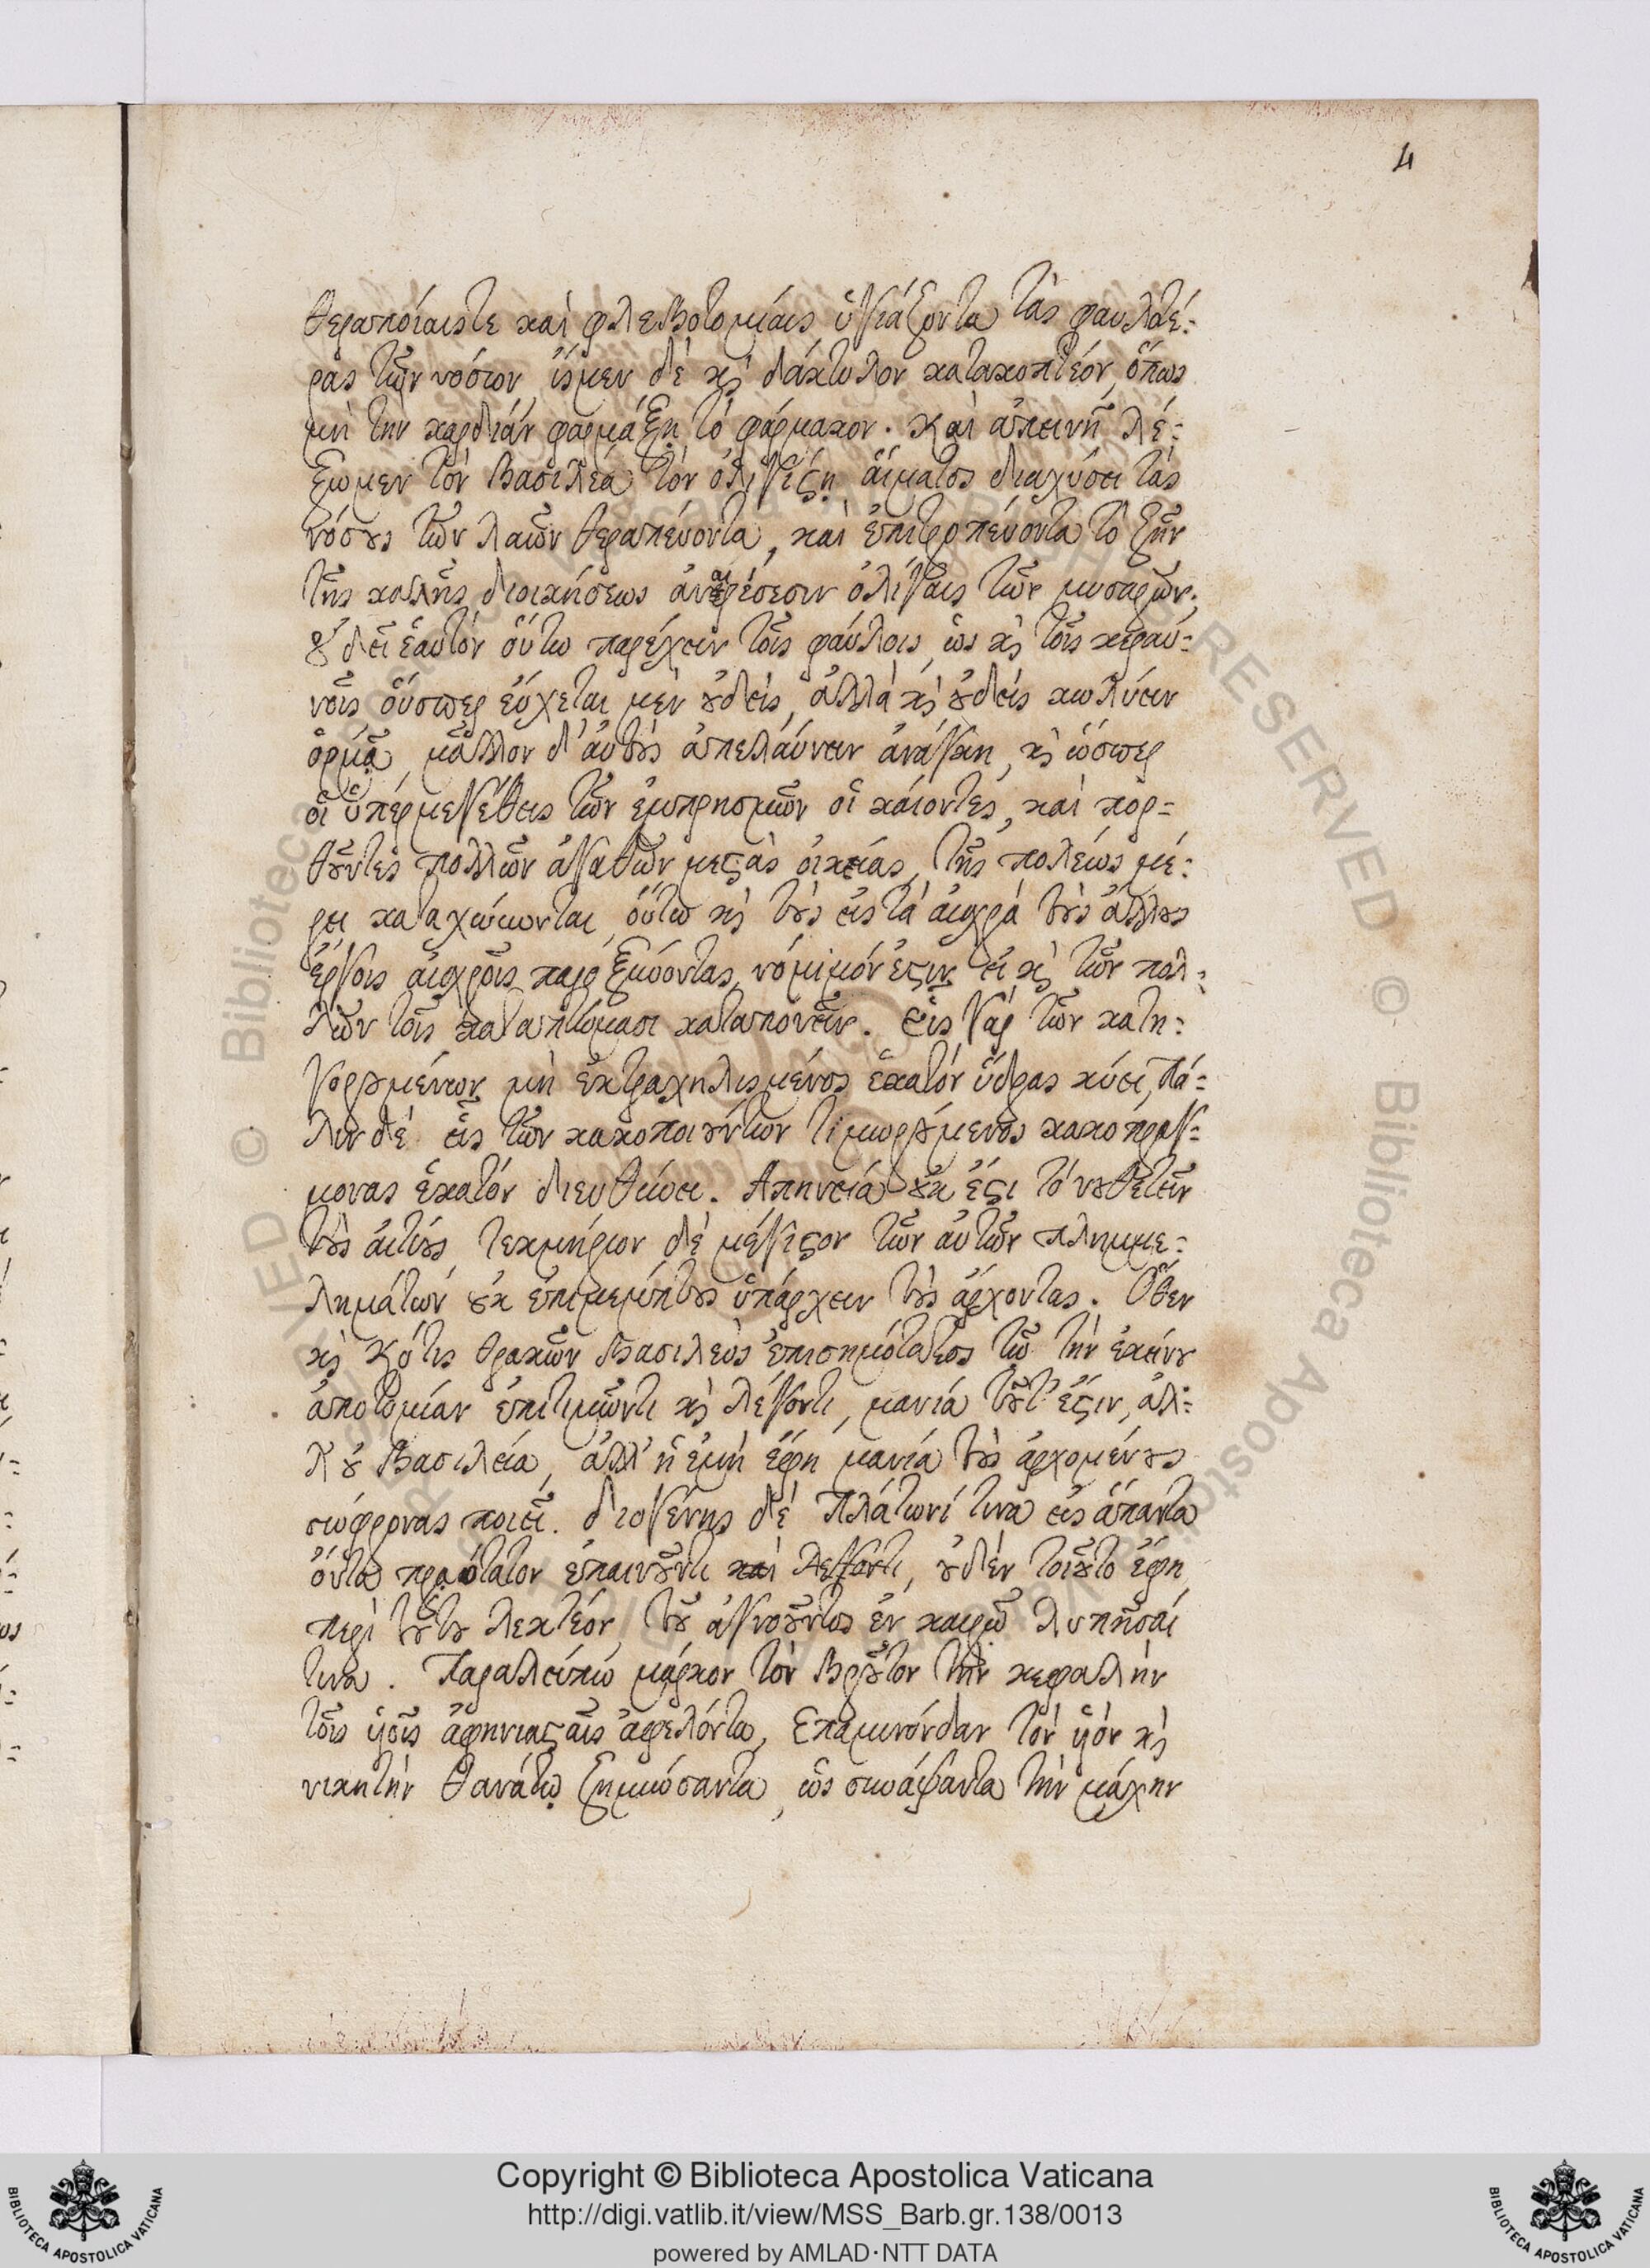 4
θεραποίαιστε καὶ φλεβοτομίαις ὑγιάζοντα τὰς φαυλοτέ=
ρας τῶν νόσων, ἴσμεν δὲ κ̀ δάκτυλον κατακοπτέον, ὅπως
μὴ τὴν καρδίαν φαρμάξῃ τὸ φάρμακον. Καὶ ἀπεινῆ λέ=
ξωμεν τὸν Βασιλέα τὸν ὀλιγίςῃ αἵματος διαχύσει τὰς
νόσȣς τῶν λαῶν θεραπεύοντα, καὶ ἐπιτροπεύοντα τὸ ζῆν
τῆς κοινῆς διοικήσεως ἀναιρέσεσιν ὀλίγαις τῶν μυσαρῶν.
ȣ̓ δεῖ ἑαυτὸν οὕτω παρέχειν τοῖς φαύλοις, ὡς κ̀ τοῖς κεραυ=
νοῖς οὕσπερ εὔχεται μὲν ȣ̓δεὶς, ἀλλὰ κ̀ ȣ̓δεὶς κωλύειν
ὁρμᾷ, μᾶλλον δ' αὐτȣ̀ς ἀπελαύνειν ἀνάγκη, κ̀ ὥσπερ
οἱ ὑπέρμεγέθεις τῶν ἐμπρησμῶν οἱ καίοντες, καὶ πορ=
θȣ͂ντες πολλῶν ἀγαθῶν μεςὰς οἰκείας, τῆς πόλεως μέ=
ρει καταχώνωνται, οὕτω κ̀ τȣ̀ς εἰς τὰ αἰσχρὰ τȣ̀ς ἄλλȣς
ἔργοις αἰσχροῖς παροξυνόοντας, νόμιμόν ἐςιν εἰ κ̀ τῶν πολ=
λῶν τοῖς καταπτώμασι καταπονεῖν. Εἷς γὰρ τῶν κατη=
γορȣμένων μὴ ἐκτραχηλισμένος ἑκατὸν ὕδρας κύει, πά=
λιν δὲ εἷς τῶν κακοποιȣ́ντων τιμωρȣ́μενος κακοπράγ=
μονας ἑκατὸν διευθύνει. Ἀπηνεία ȣ̓κ ἔςι τὸ νȣθετεῖν
τȣ̀ς αἰτίȣς, τεκμήριον δὲ μέγιςον τῶν αὐτῶν πλημμε=
λημάτων ȣ̓κ ἐπιμεμπτȣς ὑπάρχειν τȣ̀ς ἄρχοντας. Ὅθεν
κ̀ Κότις Θρακῶν Βασιλεὺς ἐπισημότατος τῷ τὴν ἐκείνȣ
ἀποτομίαν ἐπιτιμῶντι κ̀ λέγοντι, μανία τȣ͂τ' ἔςιν, ἀλ=
λ' ȣ̓ Βασιλεία, ἀλλ' ἡ ἐμὴ ἔφη μανία τȣ̀ς ἀρχομένȣς
σώφρονας ποιεῖ. Διογένης δὲ Πλάτωνί τινα εἰς ἅπαντα
ὄντα πραότατον ἐπαινȣ͂ντι καὶ λέγοντι, ȣ̓δὲν τοιȣ͂το ἔφη
περὶ τȣ́τȣ λεκτέον, τȣ͂ ἀγνοȣ͂ντος ἐν καιρῷ λυπῆσαί
τινα. Παραλείπω μάρκον τὸν Βρȣ͂τον τὴν κεφαλὴν
τοῖς ὑοῖς ἀφηνιαςαῖς ἀφελόντα, Ἐπαμινόνδαν τὸν ὑὸν κ̀
νικητὴν θανάτῳ ζημιώσαντα, ὡς συνάψαντα τὴν μάχην
Copyright © Biblioteca Apostolica Vaticana
http://digi.vatlib.it/view/MSS_Barb.gr.138/0013
powered by AMLAD·NTT DATA
BIBLIOTECA APOSTOLICA VATICANA
BIBLIOTECA APOSTOLICA VATICANA